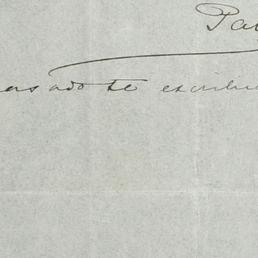 Pa
asado te escribi